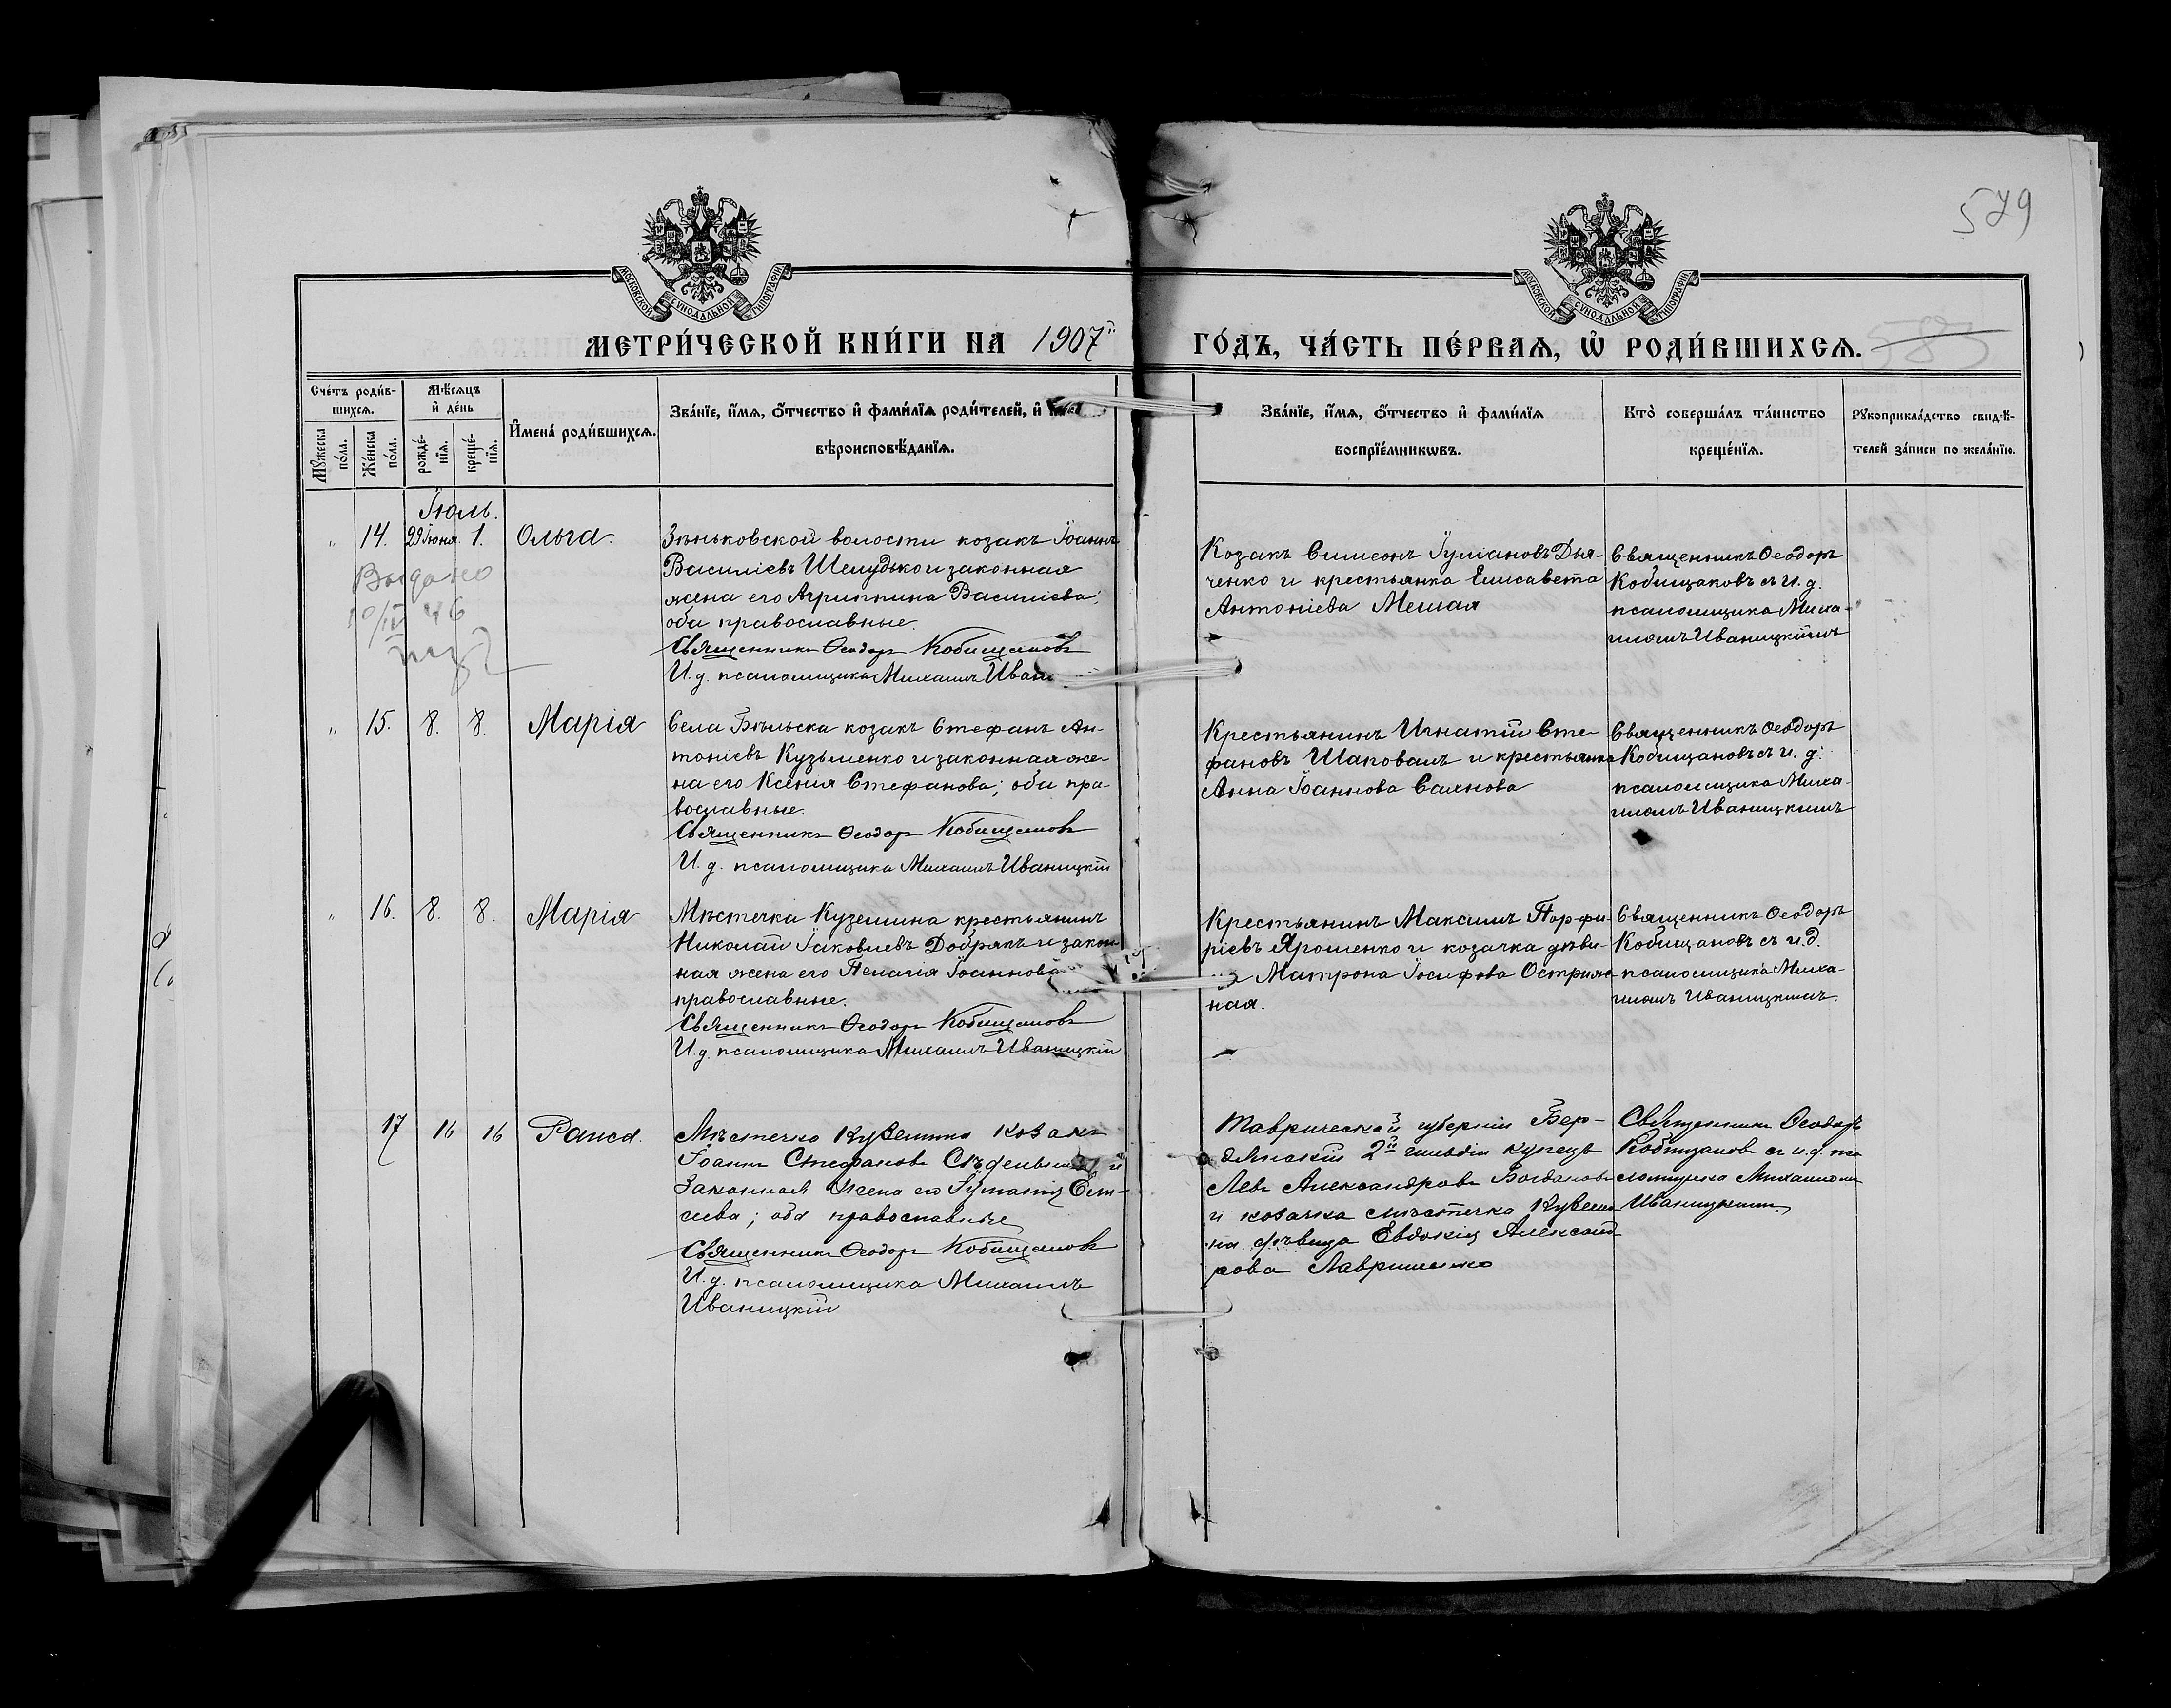 579
МОСКОВСКОЙ СУНОДАЛЬНОЙ ТИПОГРАФІИ
МОСКОВСКОЙ СУНОДАЛЬНОЙ ТИПОГРАФІИ
МЕТРИ́ЧЕСКОЙ КНИ́ГИ НА 1907й ГО́ДЪ, ЧА́СТЬ ПЕ́РВАѦ, Ѽ РОДИ́ВШИХСѦ.
585
Сче́тъ роди́в-
шихсѧ.
Мꙋ́жеска по́ла.
Же́нска по́ла.
Мѣ́сѧцъ
и҆ де́нь
рожде́-
нїѧ.
креще́-
нїѧ.
И҆мена́ роди́вшихсѧ.
Зва́нїе, и҆́мѧ, ѻ҆́тчество и҆ фами́лїѧ роди́телей, и҆
вѣроисповѣ́данїѧ.
Зва́нїе, и҆́мѧ, ѻ҆́тчество и҆ фами́лїѧ
воспрїе́мникѡвъ.
Кто̀ соверша́лъ та́инство
креще́нїѧ.
Рꙋкоприкла́дство свидѣ́-
телей за́писи по жела́нїю.
Іюль.
" 14. 29 Іюня. 1. Ольга.
Выдано
10/IV 46
Зѣньковской волости козакъ Іоаннъ
Василіевъ Шелудько и законная
жена его Агриппина Василіева;
оба православные.
Священникъ Ѳеодоръ Кобищановъ
И. д. псаломщика Михаилъ Иван
Козакъ Симеонъ Іуліановъ Дья-
ченко и крестьянка Елисавета
Антоніева Мелая
Священникъ Ѳеодоръ
Кобищановъ съ и. д.
псаломщика Миха-
иломъ Иваницкимъ
" 15. 8. 8. Марія
Села Бѣльска козакъ Стефанъ Ан-
тоніевъ Кузьменко и законная же-
на его Ксенія Стефанова; оба пра-
вославные.
Священникъ Ѳеодоръ Кобищановъ
И. д. псаломщика Михаилъ Иваницкій
Крестьянинъ Игнатій Сте-
фановъ Шаповалъ и крестьянка
Анна Іоаннова
Священникъ Ѳеодоръ
Кобищановъ съ и. д.
псаломщика Миха-
иломъ Иваницкимъ
" 16. 8. 8. Марія
Мѣстечка Куземина крестьянинъ
Николай Іаковлевъ Добрякъ и закон
ная жена его Пелагія Іоаннова
православные.
Священникъ Ѳеодоръ Кобищановъ
И. д. псаломщика Михаилъ Иваницкій
Крестьянинъ Максимъ Порфи-
ріевъ Ярошенко и козачка дѣви-
Матрона Іосифова Остриж-
ная.
Священникъ Ѳеодоръ
Кобищановъ съ и. д.
псаломщика Миха-
иломъ Иваницкимъ.
17 16 16 Раиса.
Мѣстечка Куземина козакъ
Іоаннъ Стефановъ и
Законная жена его
оба православные
Священникъ Ѳеодоръ Кобищановъ
И. д. псаломщика Михаилъ
Иваницкій
Таврической губерніи Бер-
дянскій 2й гильдіи купецъ
Левъ Александровъ Богдановъ
и козачка мѣстечка Куземи
на дѣвица Евдокія Александ
рова Лавриненко
Священникъ Ѳеодоръ
Кобищановъ съ и. д. пса
ломщика Михаиломъ
Иваницкимъ